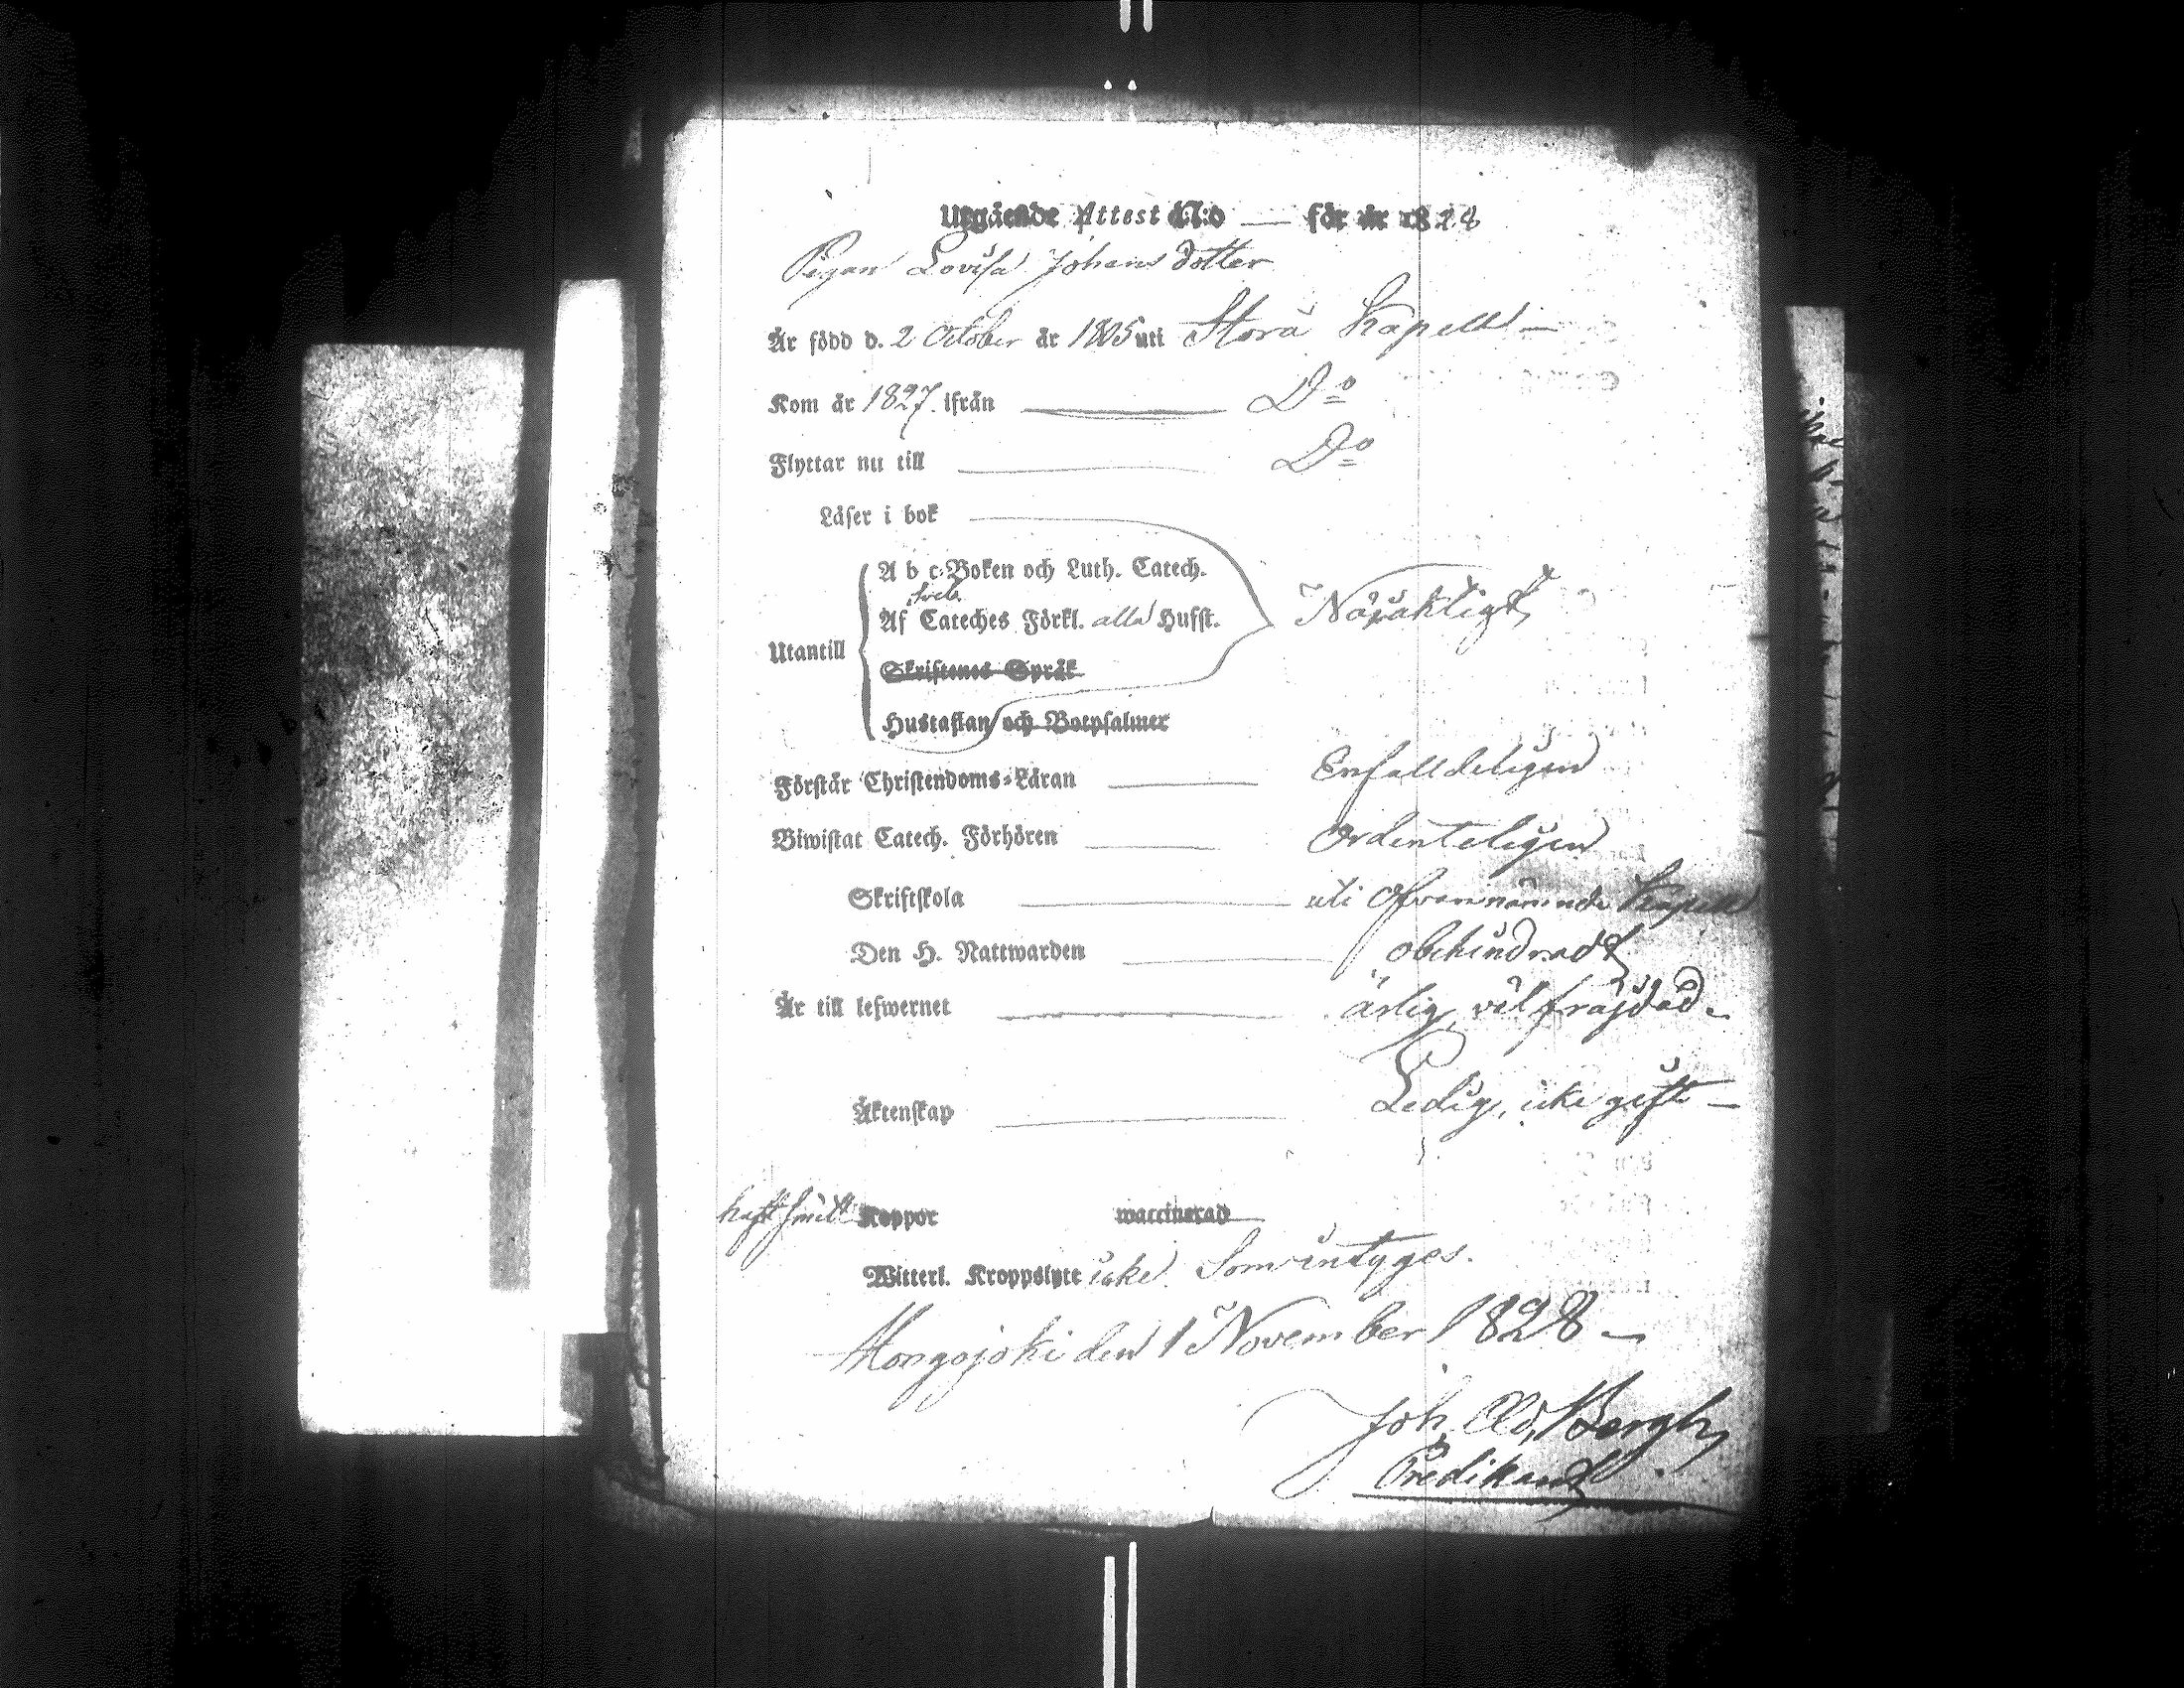 Utgående Attest N:o — för år 1828
Pigan Lovisa Johansdotter
Är född d. 2 October år 1805 uti Storå Kapell —
Kom år 1827 ifrån — Do
Flyttar nu till — Do
Läser i bok
A b c-Boken och Luth. Catech.
Sveb.
Af Cateches Förkl. alla Hufst. Nöjaktigt
Utantill
Skriftenes Språk
Hustaflan och Botpsalmer
Förstår Christendoms-Läran — Enfalldeligen
Biwistat Catech. Förhören — Ordenteligen
Skriftskola — uti Ofvannämnde Kapell
Den H. Nattwarden — obehindradt
Är till lefwernet — ärlig, väl fräjdad.
Äktenskap — Ledig, icke gift —
haft Koppor waccinerad
Witterl. Kroppslyte icke. Som intygas.
Mongojoki den 1 November 1828 —
Joh. Ad. Bergh,
Predikant.